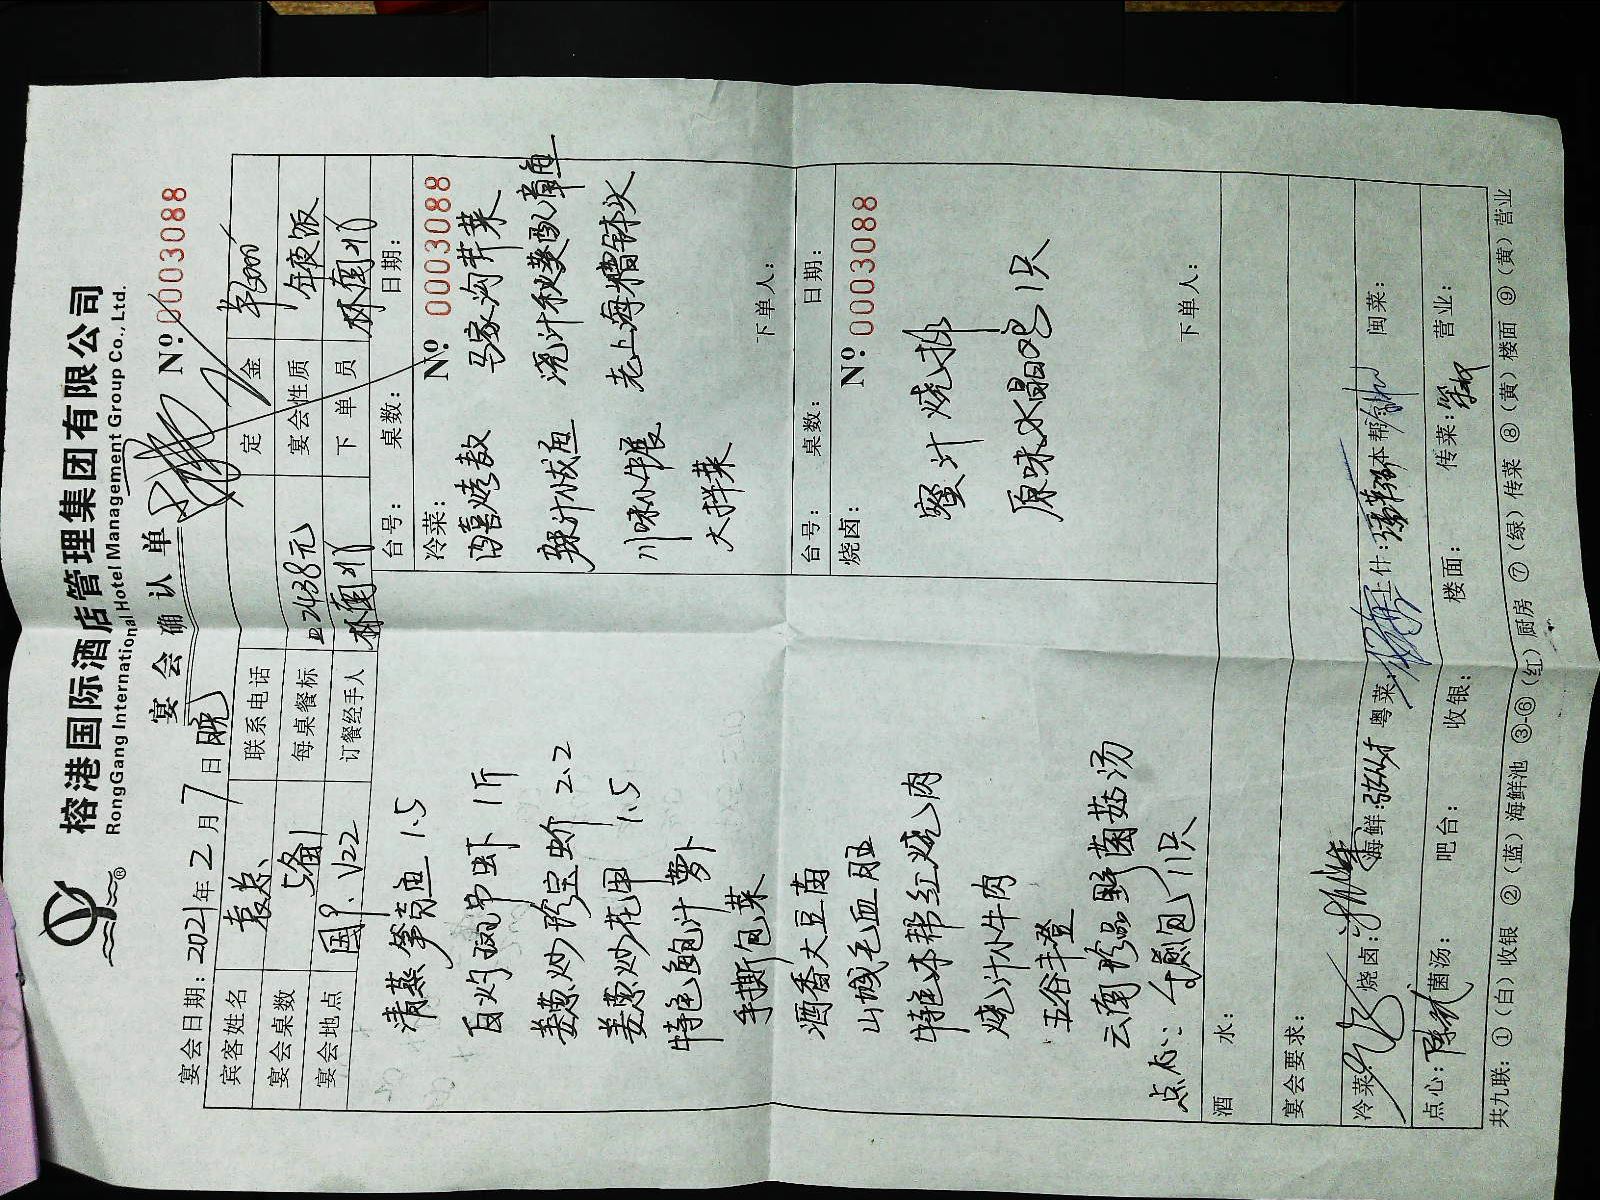 榕港国际酒店管理集团有限公司
RongGang International Hotel Management Group Co., Ltd.
宴会确认单
№:0003088
宴会日期:2021年2月7日晚
宾客姓名 袁总 联系电话 定金
宴会桌数 每桌餐标 2438元 宴会性质 年夜饭
宴会地点 国9.V22 订餐经手人 林南 下单员 林南
清蒸笋壳鱼 1.5
白灼 节虾 1斤
姜葱炒珍宝蚧 2.2
姜葱炒花甲 1.5
特色鲍汁萝卜
手撕包菜
酒香大豆苗
山城毛血旺
特色本帮红烧肉
烧汁小牛肉
五谷丰登
云南珍品野菌菇汤
点心: 生煎包 11只
台号: 桌数: 日期:
冷菜: №:0003088
四喜烤麸 马家沟芹菜
辣汁小咸鱼 浇汁秋葵八爪章鱼
川味小牛展 老上海糟钵头
大拌菜
下单人:
台号: 桌数: 日期:
烧卤: №:0003088
蜜汁烧排
原味水晶鸡 1只
下单人:
酒水:
宴会要求:
冷菜: 烧卤: 海鲜: 粤菜: 上什: 本帮: 闽菜:
点心: 菌汤: 吧台: 收银: 楼面: 传菜: 营业:
共九联:①(白)收银 ②(蓝)海鲜池 ③-⑥(红)厨房 ⑦(绿)传菜 ⑧(黄)楼面 ⑨(黄)营业